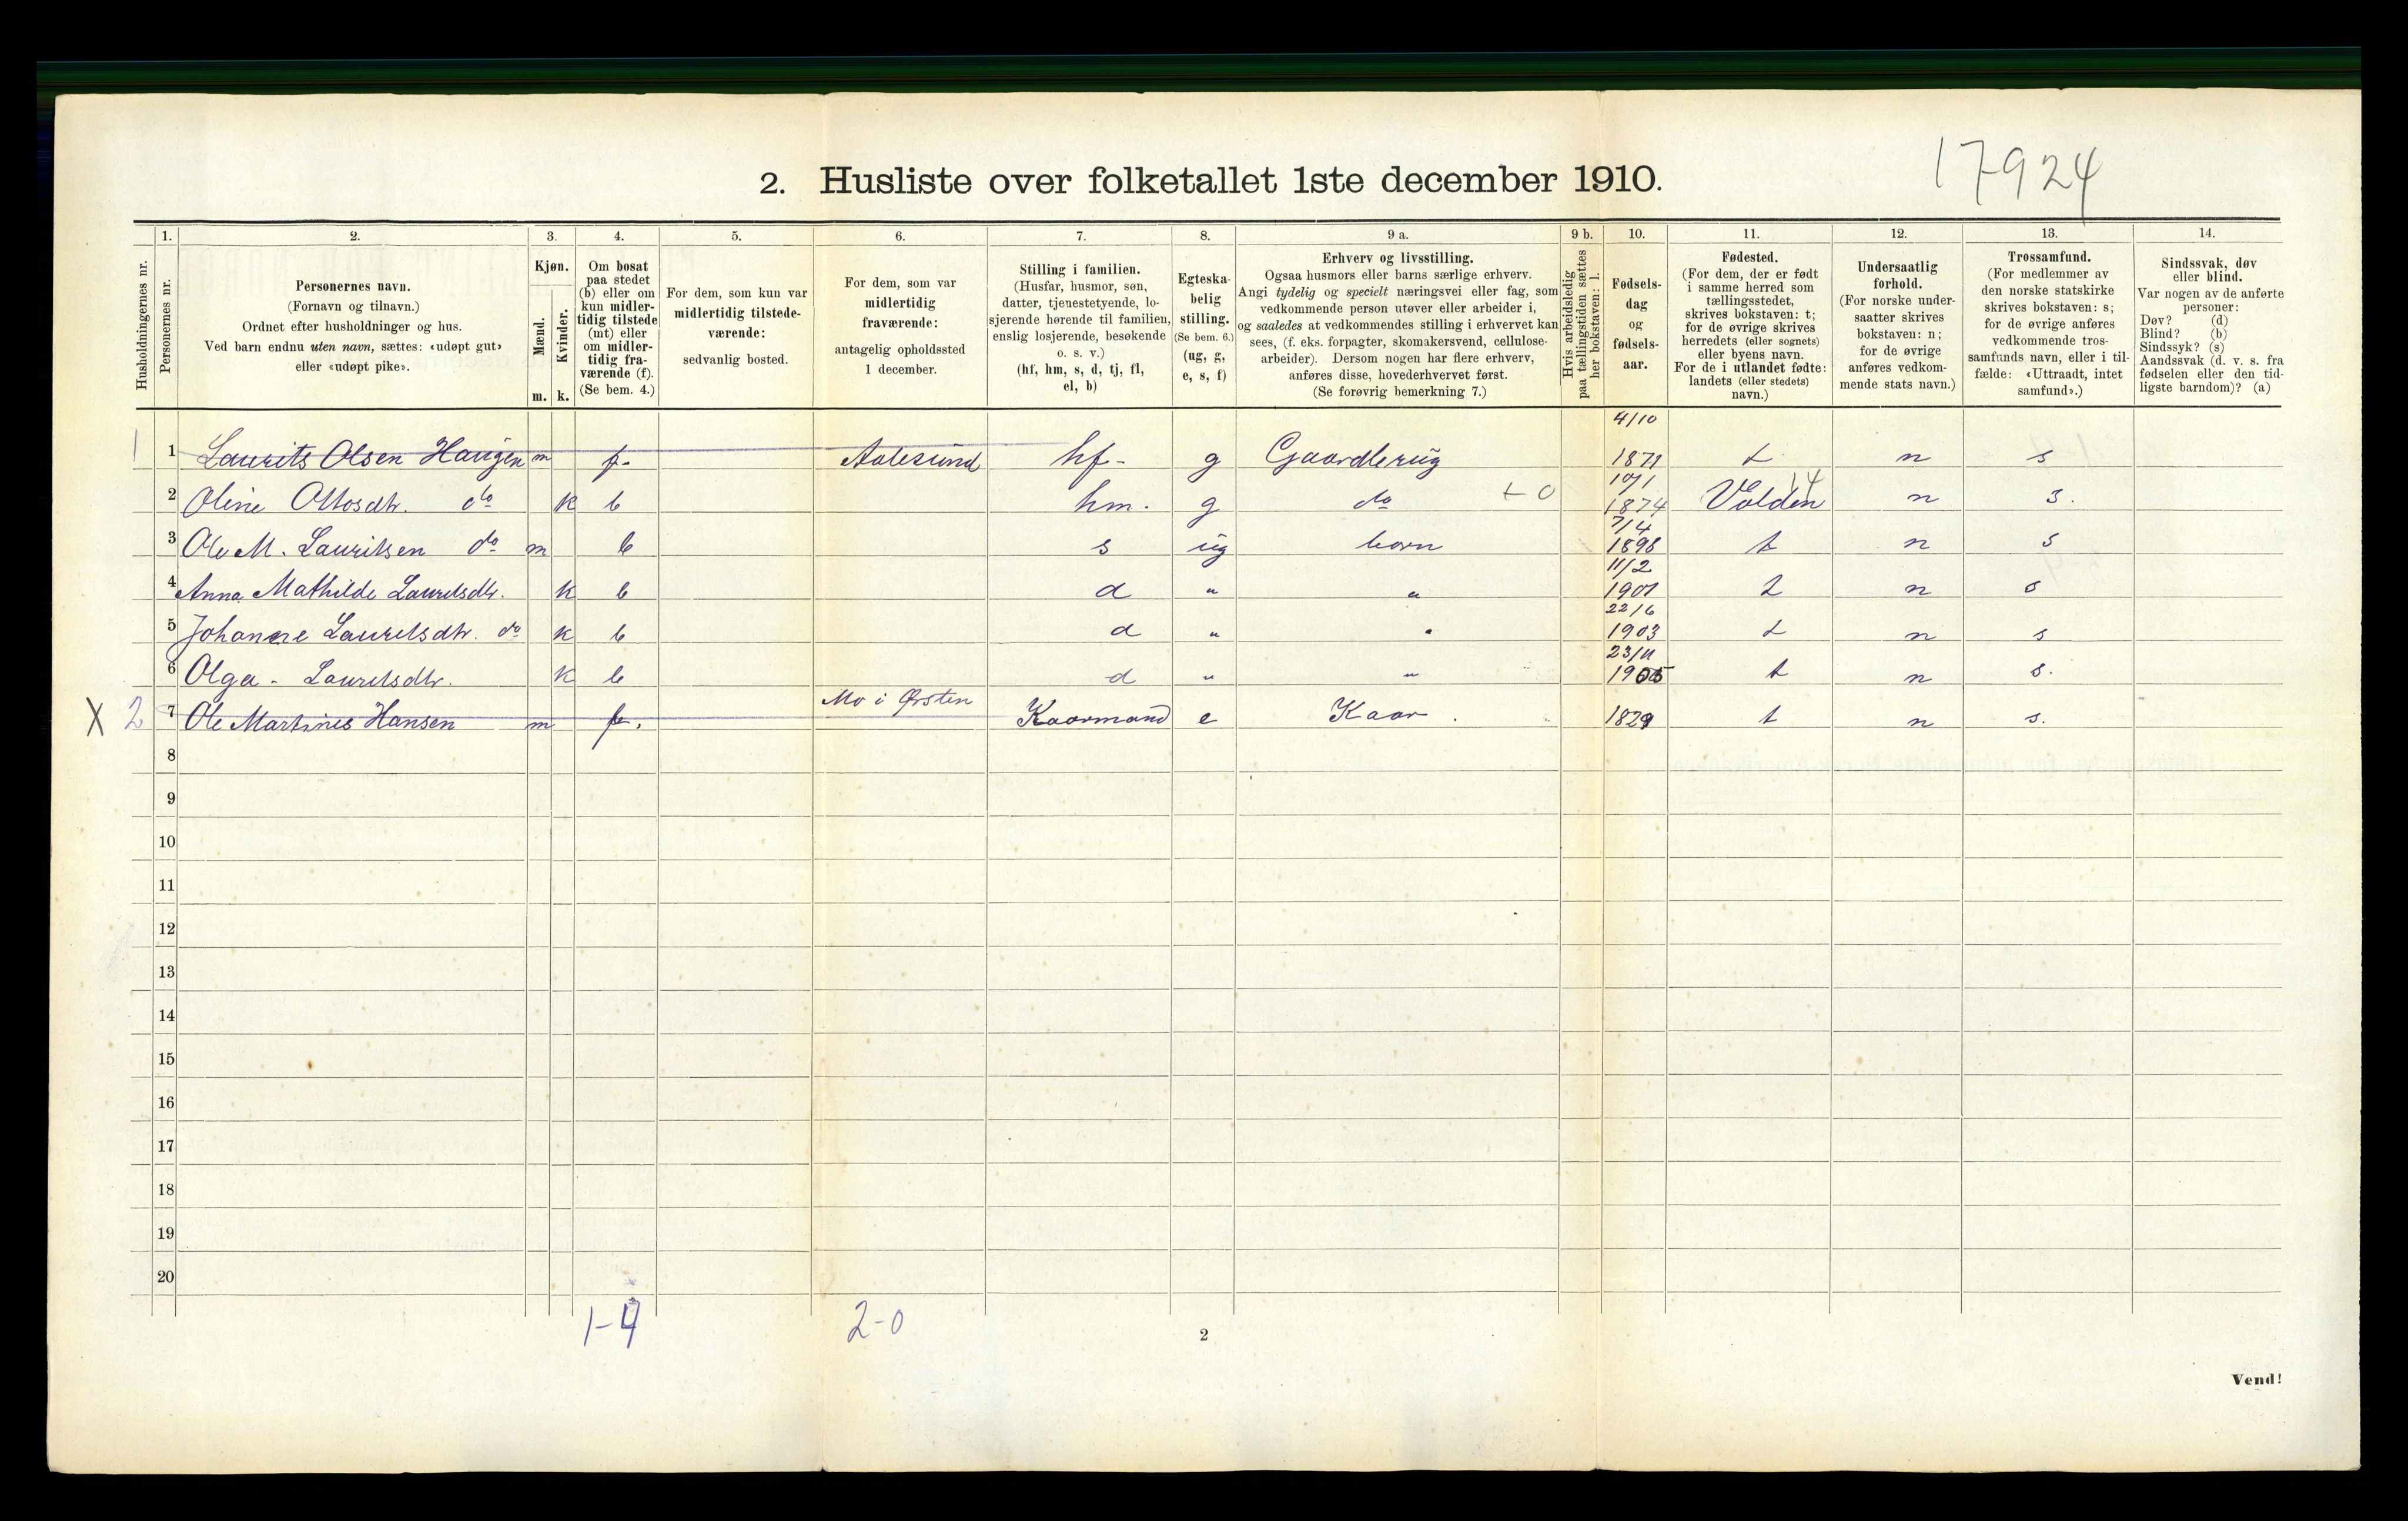 17924
2. Husliste over folketallet 1ste december 1910.
1. 2. 3. 4. 5. 6. 7. 8. 9 a. 9 b. 10. 11. 12. 13. 14.
Husholdningernes nr.
Personernes nr.
Personernes navn.
(Fornavn og tilnavn.)
Ordnet efter husholdninger og hus.
Ved barn endnu uten navn, sættes: «udøpt gut»
eller «udøpt pike».
Kjøn.
Mænd.
Kvinder.
m. k.
Om bosat
paa stedet
(b) eller om
kun midler-
tidig tilstede
(mt) eller
om midler-
tidig fra-
værende (f).
(Se bem. 4.)
For dem, som kun var
midlertidig tilstede-
værende:
sedvanlig bosted.
For dem, som var
midlertidig
fraværende:
antagelig opholdssted
1 december.
Stilling i familien.
(Husfar, husmor, søn,
datter, tjenestetyende, lo-
sjerende hørende til familien,
enslig losjerende, besøkende
o. s. v.)
(hf, hm, s, d, tj, fl,
el, b)
Egteska-
belig
stilling.
(Se bem. 6.)
(ug, g,
e, s, f)
Erhverv og livsstilling.
Ogsaa husmors eller barns særlige erhverv.
Angi tydelig og specielt næringsvei eller fag, som
vedkommende person utøver eller arbeider i,
og saaledes at vedkommendes stilling i erhvervet kan
sees, (f. eks. forpagter, skomakersvend, cellulose-
arbeider). Dersom nogen har flere erhverv,
anføres disse, hovederhvervet først.
(Se forøvrig bemerkning 7.)
Hvis arbeidsledig
paa tællingstiden sættes
her bokstaven: l.
Fødsels-
dag
og
fødsels-
aar.
Fødested.
(For dem, der er født
i samme herred som
tællingsstedet,
skrives bokstaven: t;
for de øvrige skrives
herredets (eller sognets)
eller byens navn.
For de i utlandet fødte:
landets (eller stedets)
navn.)
Undersaatlig
forhold.
(For norske under-
saatter skrives
bokstaven: n;
for de øvrige
anføres vedkom-
mende stats navn.)
Trossamfund.
(For medlemmer av
den norske statskirke
skrives bokstaven: s;
for de øvrige anføres
vedkommende tros-
samfunds navn, eller i til-
fælde: «Uttraadt, intet
samfund».)
Sindssvak, døv
eller blind.
Var nogen av de anførte
personer:
Døv? (d)
Blind? (b)
Sindssyk? (s)
Aandssvak (d. v. s. fra
fødselen eller den tid-
ligste barndom)? (a)
4/10
1 1 Laurits Olsen Haugen m f. Aalesund hf - g Gaardbrug 1871 t n s
2 Oline Ottosdtr. do k b hm. g do 1874 Volden n s.
7/4
3 Ole M. Lauritsen do m b s ug barn 1898 t n s
11/2
4 Anna Mathilde Lauritsdtr. k b d " " 1901 t n s
22/6
5 Johanne Lauritsdtr. do k b d " " 1903 t n s
23/11
6 Olga - Lauritsdtr. k b d " " 1905 t n s.
X 2 7 Ole Martinus Hansen m f. Mo i Ørsten Kaarmand e Kaar. 1829 t n s.
8
9
10
11
12
13
14
15
16
17
18
19
20
1-4 2-0
2
Vend!